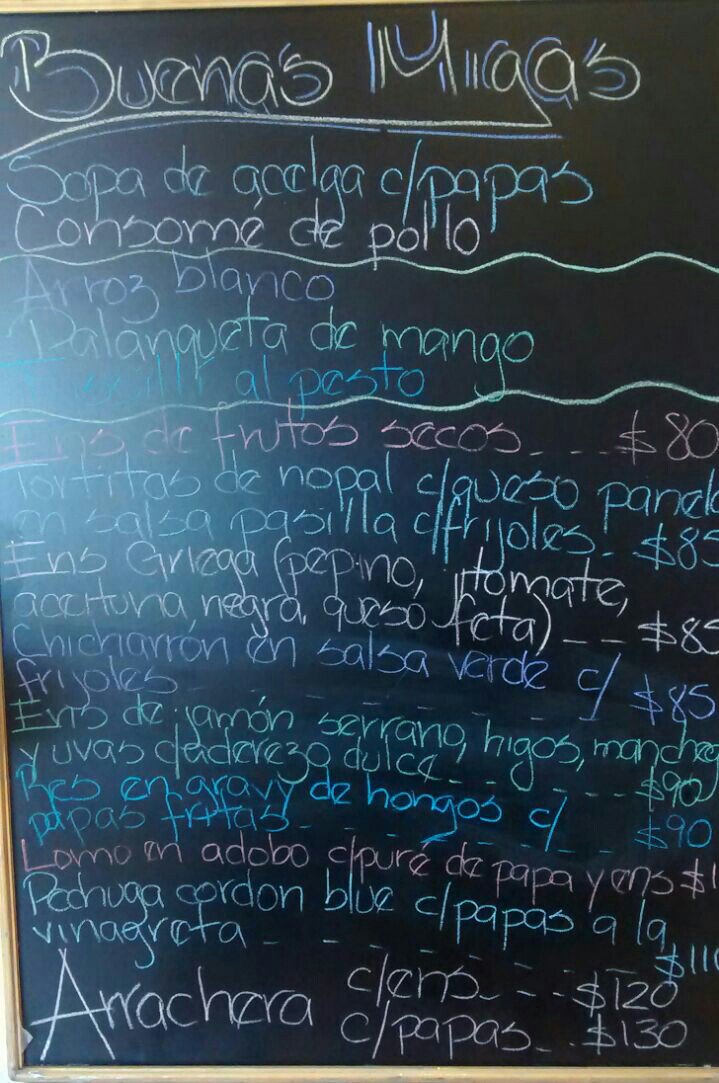 Buenas Migas
Sopa de acelga c/papas
Consomé de pollo
Arroz blanco
Palanqueta de mango
al pesto
Ens de frutos secos - - - $80
Tortitas de nopal c/queso panela
en salsa pasilla c/frijoles - $85
Ens Griega (pepino, jitomate,
aceituna negra, queso feta) - - - $85
Chicharrón en salsa verde c/
frijoles - - - - - - - - $85
Ens de jamón serrano, higos, manchego
y uvas c/aderezo dulce - - - - - - $90
Res en gravy de hongos c/
papas fritas - - - - - - - - $90
Lomo en adobo c/puré de papa y ens
Pechuga cordon blue c/papas a la
vinagreta - - - - - - - - $110
Arrachera c/ens - - - $120
c/papas - - $130